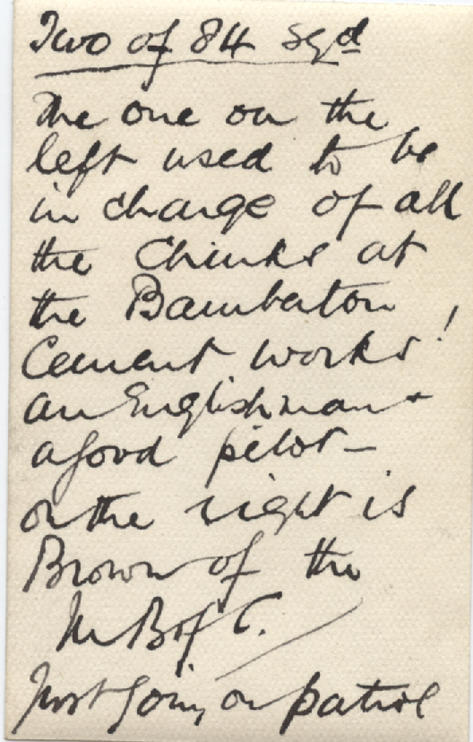 Two of 84 Sqd
The one on the
left used to be
in charge of all
the Chinks at
the Bamberton
Cement works!
an Englishman +
a good pilot —
on the right is
Brown of the
M B of C.
Just going on patrol